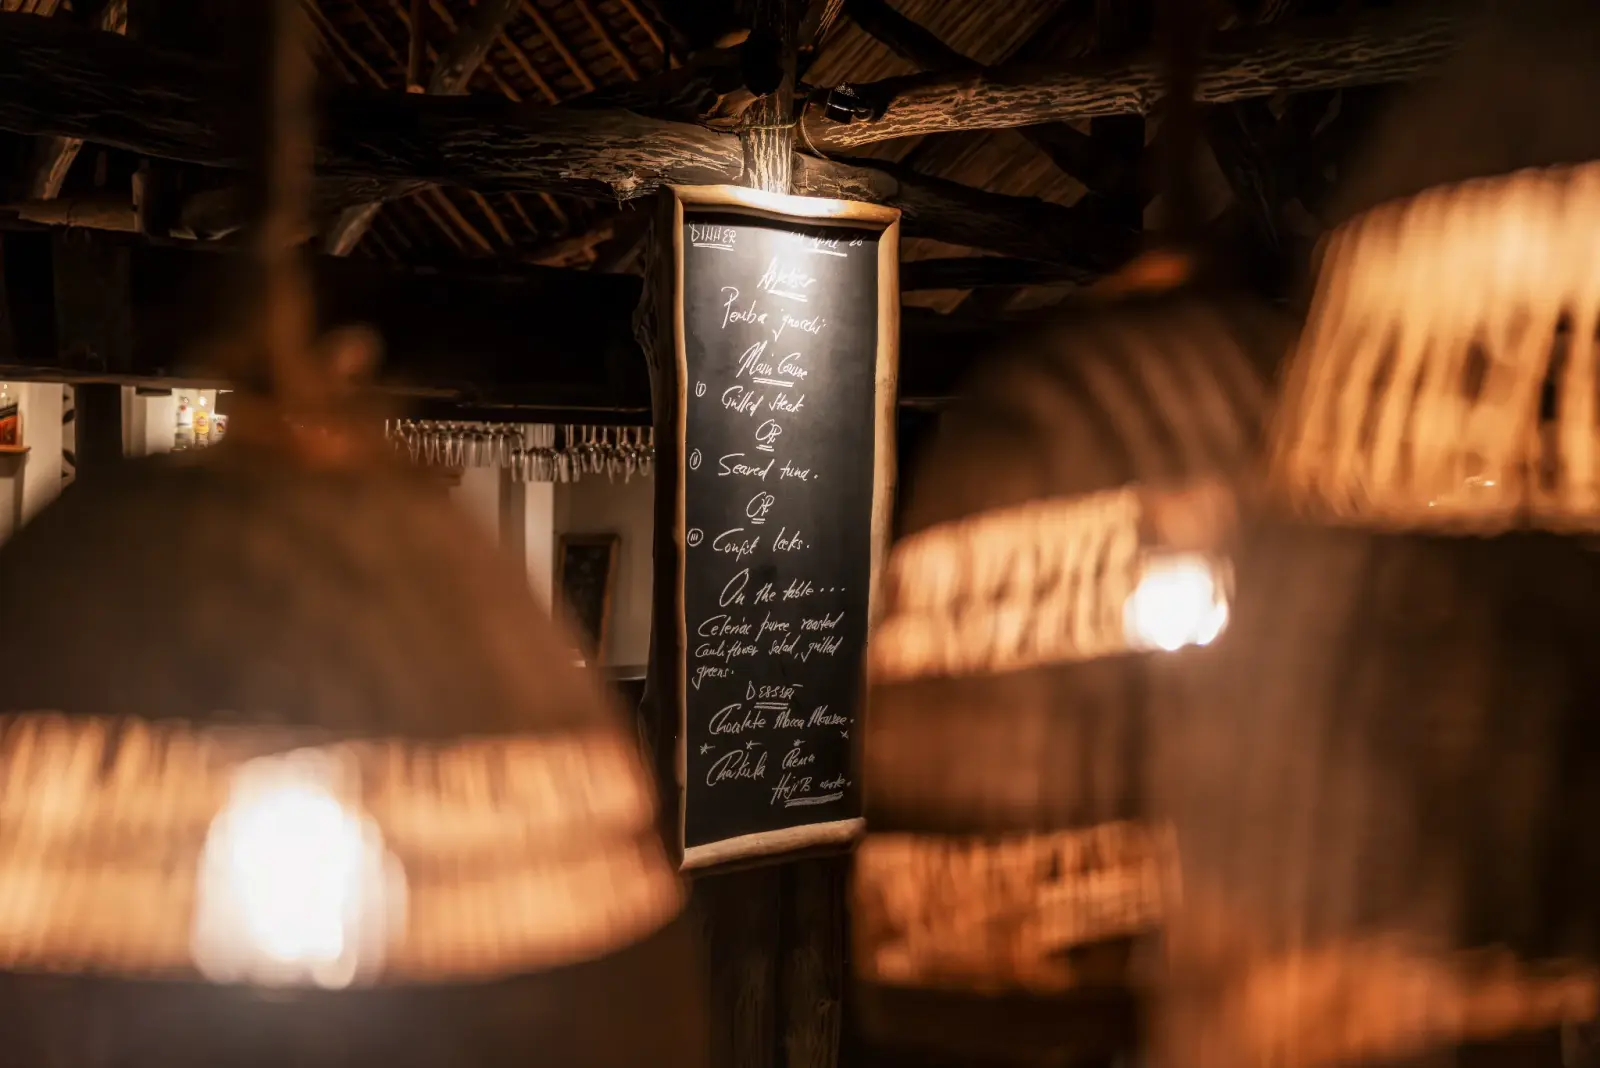 DINNER
Appetiser
Pemba gnocchi
Main Course
I Grilled steak
OR
II Seared tuna.
OR
III Confit leeks.
On the table...
Celeriac puree, roasted
Cauliflower salad, grilled
greens.
DESSERT
Chocolate Mocca Mousse.
* * * x
Chakula Chema